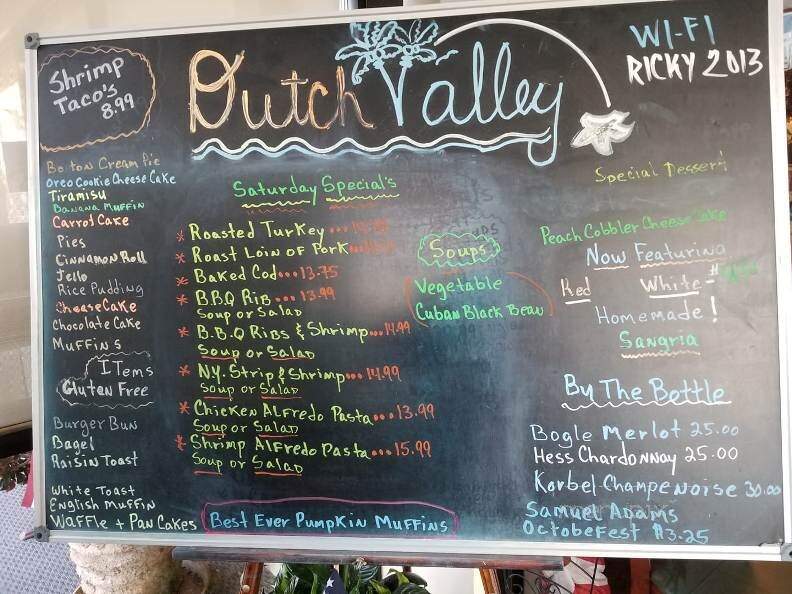 Shrimp
Taco's
8.99
Dutch Valley
WI-FI
RICKY 2013
Boston Cream Pie
Oreo Cookie Cheese Cake
Tiramisu
Banana Muffin
Carrot Cake
Pies
Cinnamon Roll
Jello
Rice Pudding
Cheese Cake
Chocolate Cake
Muffins
Items
Gluten Free
Burger Bun
Bagel
Raisin Toast
White Toast
English Muffin
Waffle + Pan Cakes
Saturday Special's
* Roasted Turkey
* Roast Loin of Pork
* Baked Cod...13.75
* B.B.Q Rib...13.99
Soup or Salad
* B.B.Q Ribs & Shrimp...14.99
Soup or Salad
* N.Y. Strip & Shrimp...14.99
Soup or Salad
* Chicken Alfredo Pasta...13.99
Soup or Salad
* Shrimp Alfredo Pasta...15.99
Soup or Salad
Best Ever Pumpkin Muffins
Soups
Vegetable
Cuban Black Bean
Special Dessert
Peach Cobbler Cheese Cake
Now Featuring
Red White
Homemade!
Sangria
By The Bottle
Bogle Merlot 25.00
Hess Chardonnay 25.00
Korbel Champenoise 30.00
Samuel Adams
Octobefest $3.25